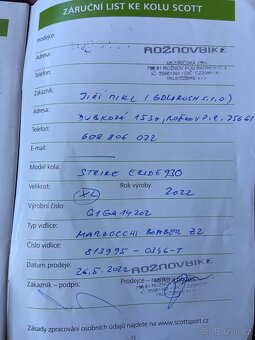 ZÁRUČNÍ LIST KE KOLU SCOTT
Prodejce:
ROŽNOVBIKE
Adresa:
MEZIŘÍČSKÁ
756 61 ROŽNOV POD RADHOŠTĚM
Zákazník: JIŘÍ MIKL (GOLDRUSH S.R.O)
Adresa: DUBKOVÁ 1530, ROŽNOV P.R. 75661
Telefon: 608 806 072
E-mail:
Model kola: STRIKE ERIDE 930
Velikost: XL Rok výroby 2022
Výrobní číslo: G1GA14202
Typ vidlice: MARZOCCHI BOMBER Z2
Číslo vidlice: 813995-0346-T
Datum prodeje: 26.5.2022 ROŽNOVBIKE
Zákazník – podpis: Prodejce – razítko a podpis:
Zásady zpracování osobních údajů najdete na www.scottsport.cz